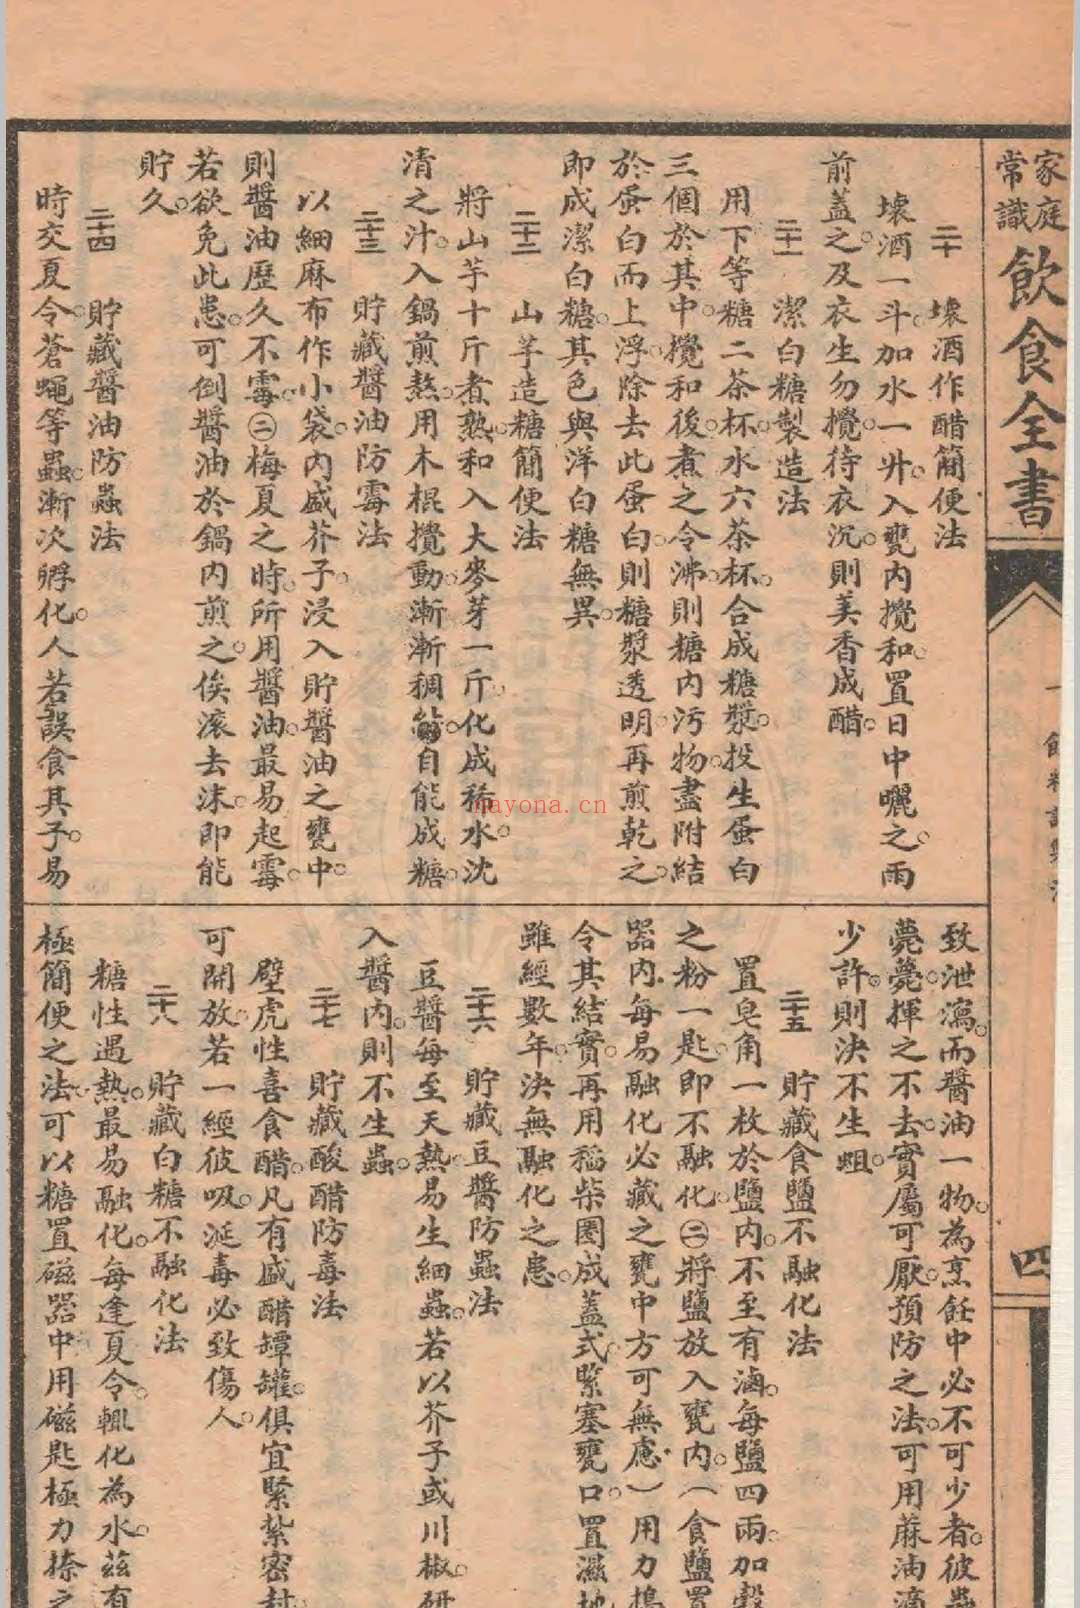 家庭
常識
飲食全書
四
二十　壞酒作醋簡便法
壞酒一斗。加水一升。入甕內攪和。置日中曬之。雨
前蓋之。及衣生勿攪。待衣沉。則美香成醋。
二十一　潔白糖製造法
用下等糖二茶杯。水六茶杯。合成糖漿。投生蛋白
三個於其中。攪和後。煮之令沸。則糖內污物。盡附結
於蛋白而上浮。除去此蛋白。則糖漿透明。再煎乾之。
即成潔白糖。其色與洋白糖無異。
二十二　山芋造糖簡便法
將山芋十斤。煮熟。和入大麥芽一斤。化成稀水。沈
清之汁。入鍋煎熬。用木棍攪動。漸漸稠。自能成糖。
二十三　貯藏醬油防霉法
以細麻布作小袋。內盛芥子。浸入貯醬油之甕中。
則醬油歷久不霉。㊁梅夏之時。所用醬油。最易起霉。
若欲免此患。可倒醬油於鍋內煎之。俟滾去沫。即能
貯久。
二十四　貯藏醬油防蟲法
時交夏令。蒼蠅等蟲。漸次孵化。人若誤食其子。易
致泄瀉。而醬油一物。為烹飪中必不可少者。彼蟲
薨薨。揮之不去。實屬可厭。預防之法。可用蔴油滴
少許。則決不生蛆。
二十五　貯藏食鹽不融化法
置皂角一枚於鹽內。不至有滷。每鹽四兩。加穀
之粉一匙。即不融化。㊁將鹽放入甕內。（食鹽置
器內。每易融化。必藏之甕中方可無慮）用力搗
令其結實。再用稻柴圈成蓋式。緊塞甕口。置濕地
雖經數年。決無融化之患。
二十六　貯藏豆醬防蟲法
豆醬每至天熱。易生細蟲。若以芥子或川椒研
入醬內。則不生蟲。
二十七　貯藏酸醋防毒法
壁虎性喜食醋。凡有盛醋罈罐。俱宜緊紮密封
可開放。若一經彼吸。涎毒必致傷人。
二十八　貯藏白糖不融化法
糖性遇熱。最易融化。每逢夏令。輒化為水。茲有
極簡便之法。可以糖置磁器中。用磁匙極力捺之
nayona.cn